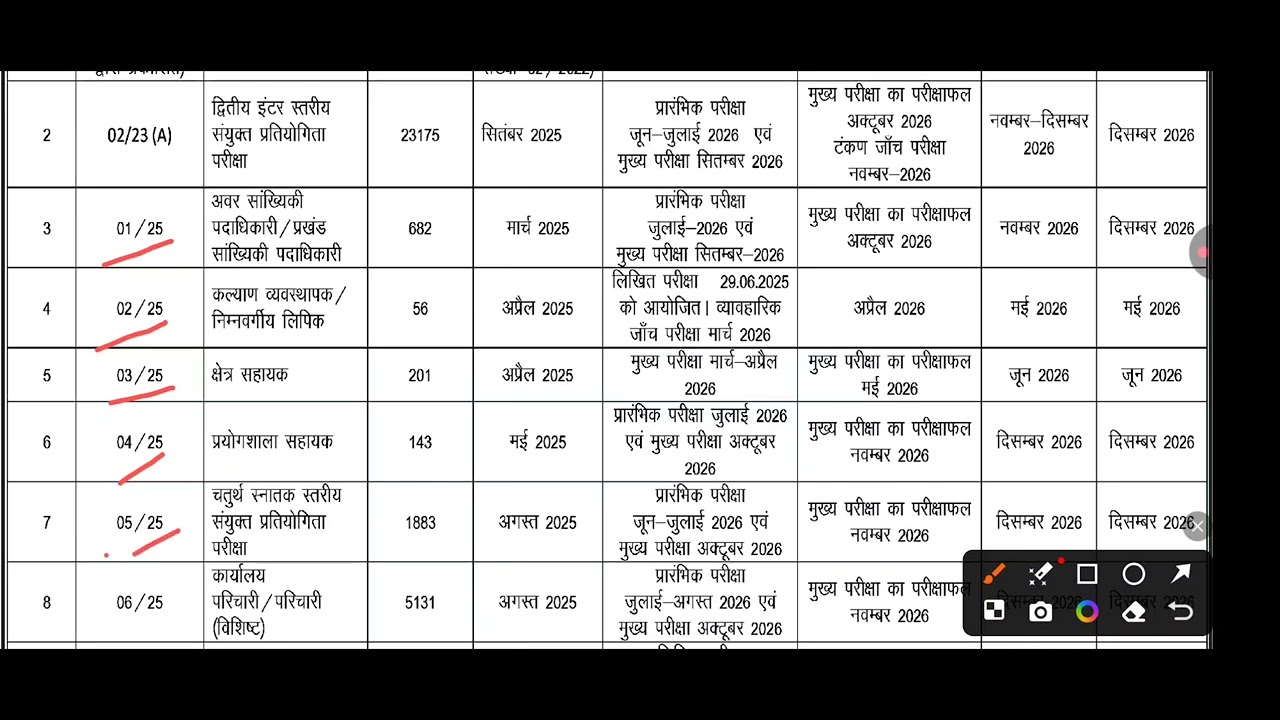 द्वितीय इंटर स्तरीय
संयुक्त प्रतियोगिता
परीक्षा
2
02/23 (A)
23175
सितंबर 2025
प्रारंभिक परीक्षा
जून–जुलाई 2026 एवं
मुख्य परीक्षा सितम्बर 2026
मुख्य परीक्षा का परीक्षाफल
अक्टूबर 2026
टंकण जाँच परीक्षा
नवम्बर–2026
नवम्बर–दिसम्बर
2026
दिसम्बर 2026
3
01/25
अवर सांख्यिकी
पदाधिकारी/प्रखंड
सांख्यिकी पदाधिकारी
682
मार्च 2025
प्रारंभिक परीक्षा
जुलाई–2026 एवं
मुख्य परीक्षा सितम्बर–2026
मुख्य परीक्षा का परीक्षाफल
अक्टूबर 2026
नवम्बर 2026
दिसम्बर 2026
4
02/25
कल्याण व्यवस्थापक/
निम्नवर्गीय लिपिक
56
अप्रैल 2025
लिखित परीक्षा 29.06.2025
को आयोजित। व्यावहारिक
जाँच परीक्षा मार्च 2026
अप्रैल 2026
मई 2026
मई 2026
5
03/25
क्षेत्र सहायक
201
अप्रैल 2025
मुख्य परीक्षा मार्च–अप्रैल
2026
मुख्य परीक्षा का परीक्षाफल
मई 2026
जून 2026
जून 2026
6
04/25
प्रयोगशाला सहायक
143
मई 2025
प्रारंभिक परीक्षा जुलाई 2026
एवं मुख्य परीक्षा अक्टूबर
2026
मुख्य परीक्षा का परीक्षाफल
नवम्बर 2026
दिसम्बर 2026
दिसम्बर 2026
7
05/25
चतुर्थ स्नातक स्तरीय
संयुक्त प्रतियोगिता
परीक्षा
1883
अगस्त 2025
प्रारंभिक परीक्षा
जून–जुलाई 2026 एवं
मुख्य परीक्षा अक्टूबर 2026
मुख्य परीक्षा का परीक्षाफल
नवम्बर 2026
दिसम्बर 2026
दिसम्बर 2026
8
06/25
कार्यालय
परिचारी/परिचारी
(विशिष्ट)
5131
अगस्त 2025
प्रारंभिक परीक्षा
जुलाई–अगस्त 2026 एवं
मुख्य परीक्षा अक्टूबर 2026
मुख्य परीक्षा का परीक्षाफल
नवम्बर 2026